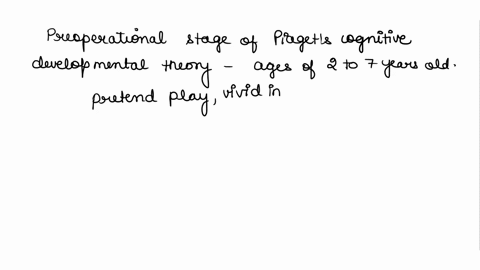 Preoperational stage of Piaget's cognitive
developmental theory – ages of 2 to 7 years old.
pretend play, vivid in